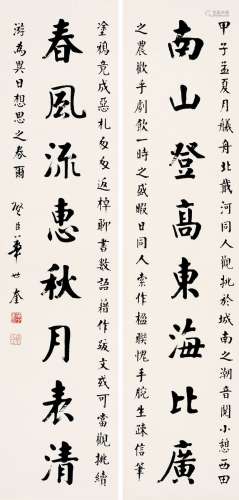 甲子孟夏月艤舟北戴河同人觀桃於城南之潮音閣小憩西田
南山登高東海比廣
之農歡手劇飲一時之盛暇日同人索作楹聯愧手腕生疎信筆
塗鴉竟成惡札匆匆返棹聊書數語藉作跋文或可當觀桃續
春風流惠秋月表清
游為異日想思之券爾
璧臣華世奎